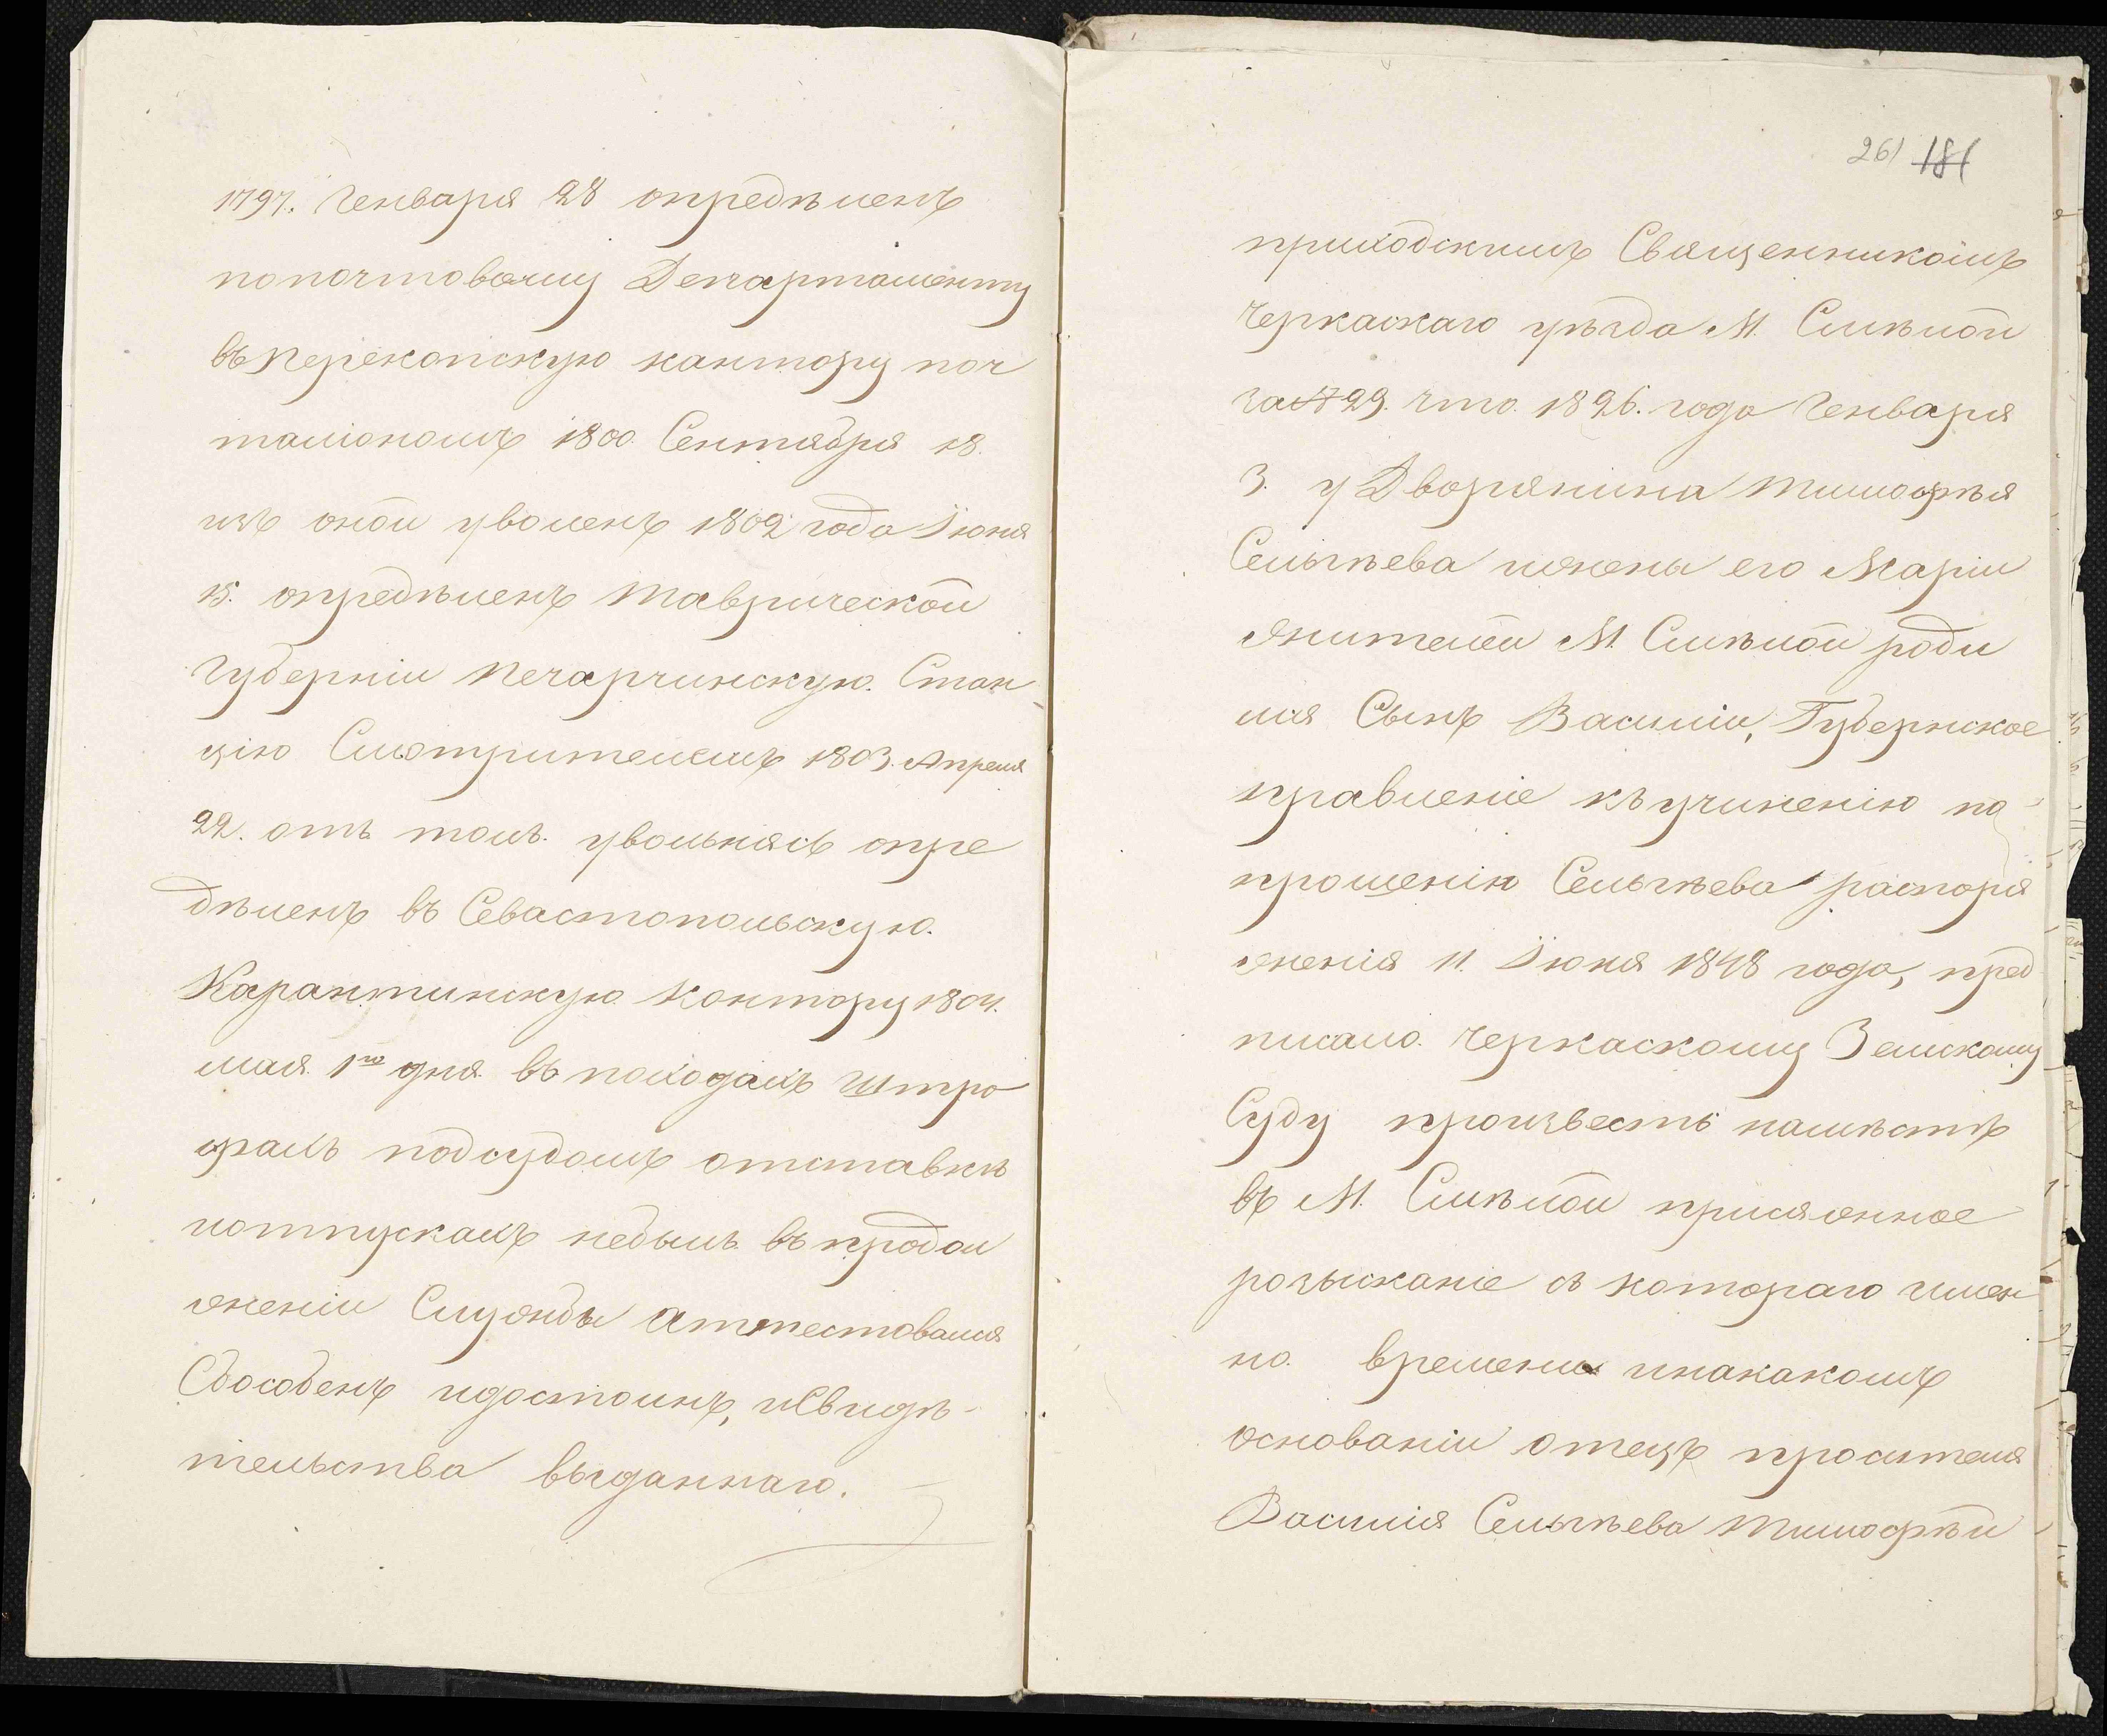 1797. Генваря 28 опредѣленъ
попочтовому Департаменту
въ Перекопскую кантору поч
таліономъ 1800. Сентября 18.
изъ оной уволенъ 1802 года Іюня
15. опредѣленъ Таврической
Губерніи Печарчинскую. Стан
цію Смотрителемъ 1803. Апреля
22. отъ толь. увольнясь опре
дѣленъ въ Севастопольскую.
Карантинскую Контору 1804.
мая. 1го дня. въ походахъ Штро
фахъ подсудомъ отставкѣ
иотпускахъ небылъ въ продол
женіи Службы Аттестовался
Сбособенъ идостоинъ, иСвидѣ-
тельства выданнаго.
261 181
приходскимъ Священникомъ
Черкаскаго уѣзда М. Смѣлой
за № 29. что. 1826. года Генваря
3. у Дворянина Тимофѣя
Сельгѣева ижены его Маріи
жителей М. Смѣлой роди
лся Сынъ Василій, Губернское
правленіе къ учиненію по
прошенію Сельгѣева распоря
женія 11. Іюня 1848 года, пред
писало. Черкаскому Земскому
Суду произвесть намѣстѣ
въ М. Смѣлой присяжное
розысканіе съ котораго имен
но. времени инакакомъ
основаніи отецъ просителя
Василія Сельгѣева Тимофѣй